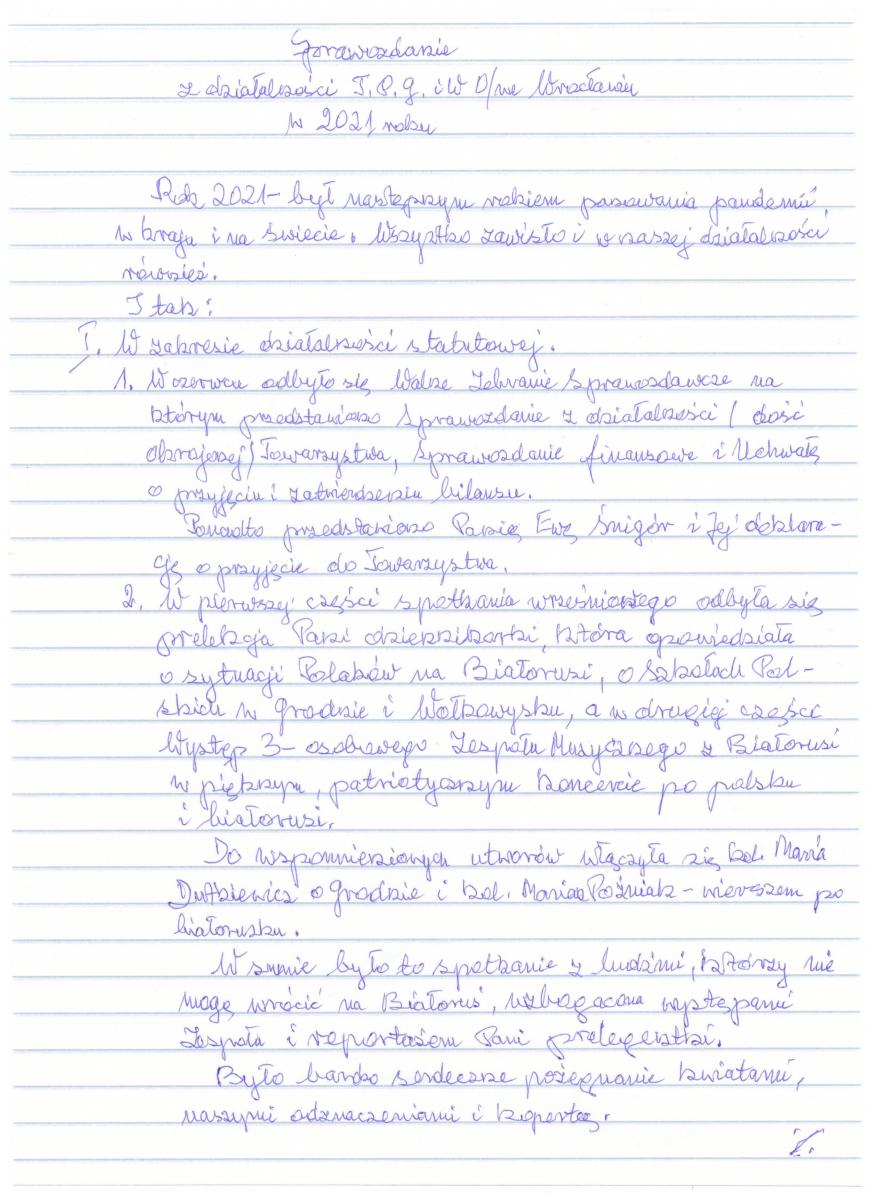 Sprawozdanie
z działalności T.P.G. i W O/we Wrocławiu
w 2021 roku
Rok 2021 - był następnym rokiem panowania pandemii
w kraju i na świecie. Wszystko zawisło i w naszej działalności
również.
I tak:
I. W zakresie działalności statutowej.
1. W czerwcu odbyło się Walne Zebranie Sprawozdawcze na
którym przedstawiono Sprawozdanie z działalności / dość
okrojonej/ Towarzystwa, Sprawozdanie finansowe i Uchwałę
o przyjęciu i zatwierdzeniu bilansu.
Ponadto przedstawiono Panią Ewę Śnigór i Jej deklara-
cję o przyjęcie do Towarzystwa.
2. W pierwszej części spotkania wrześniowego odbyła się
prelekcja Pani dziennikarki, która opowiedziała
o sytuacji Polaków na Białorusi, o szkołach Pol-
skich w Grodnie i Wołkowysku, a w drugiej części
Występ 3-osobowego Zespołu Muzycznego z Białorusi
w pięknym, patriotycznym koncercie po polsku
i białorusi.
Do wspomnienionych utworów włączyła się kol. Maria
Dutkiewicz o Grodnie i kol. Marian Poźniak - wierszem po
białorusku.
W sumie było to spotkanie z ludźmi, którzy nie
mogę wrócić na Białoruś, wzbogacona występami
Zespołu i reportażem Pani prelegentki.
Było bardzo serdeczne pożegnanie kwiatami,
naszymi odznaczeniami i kopertą.